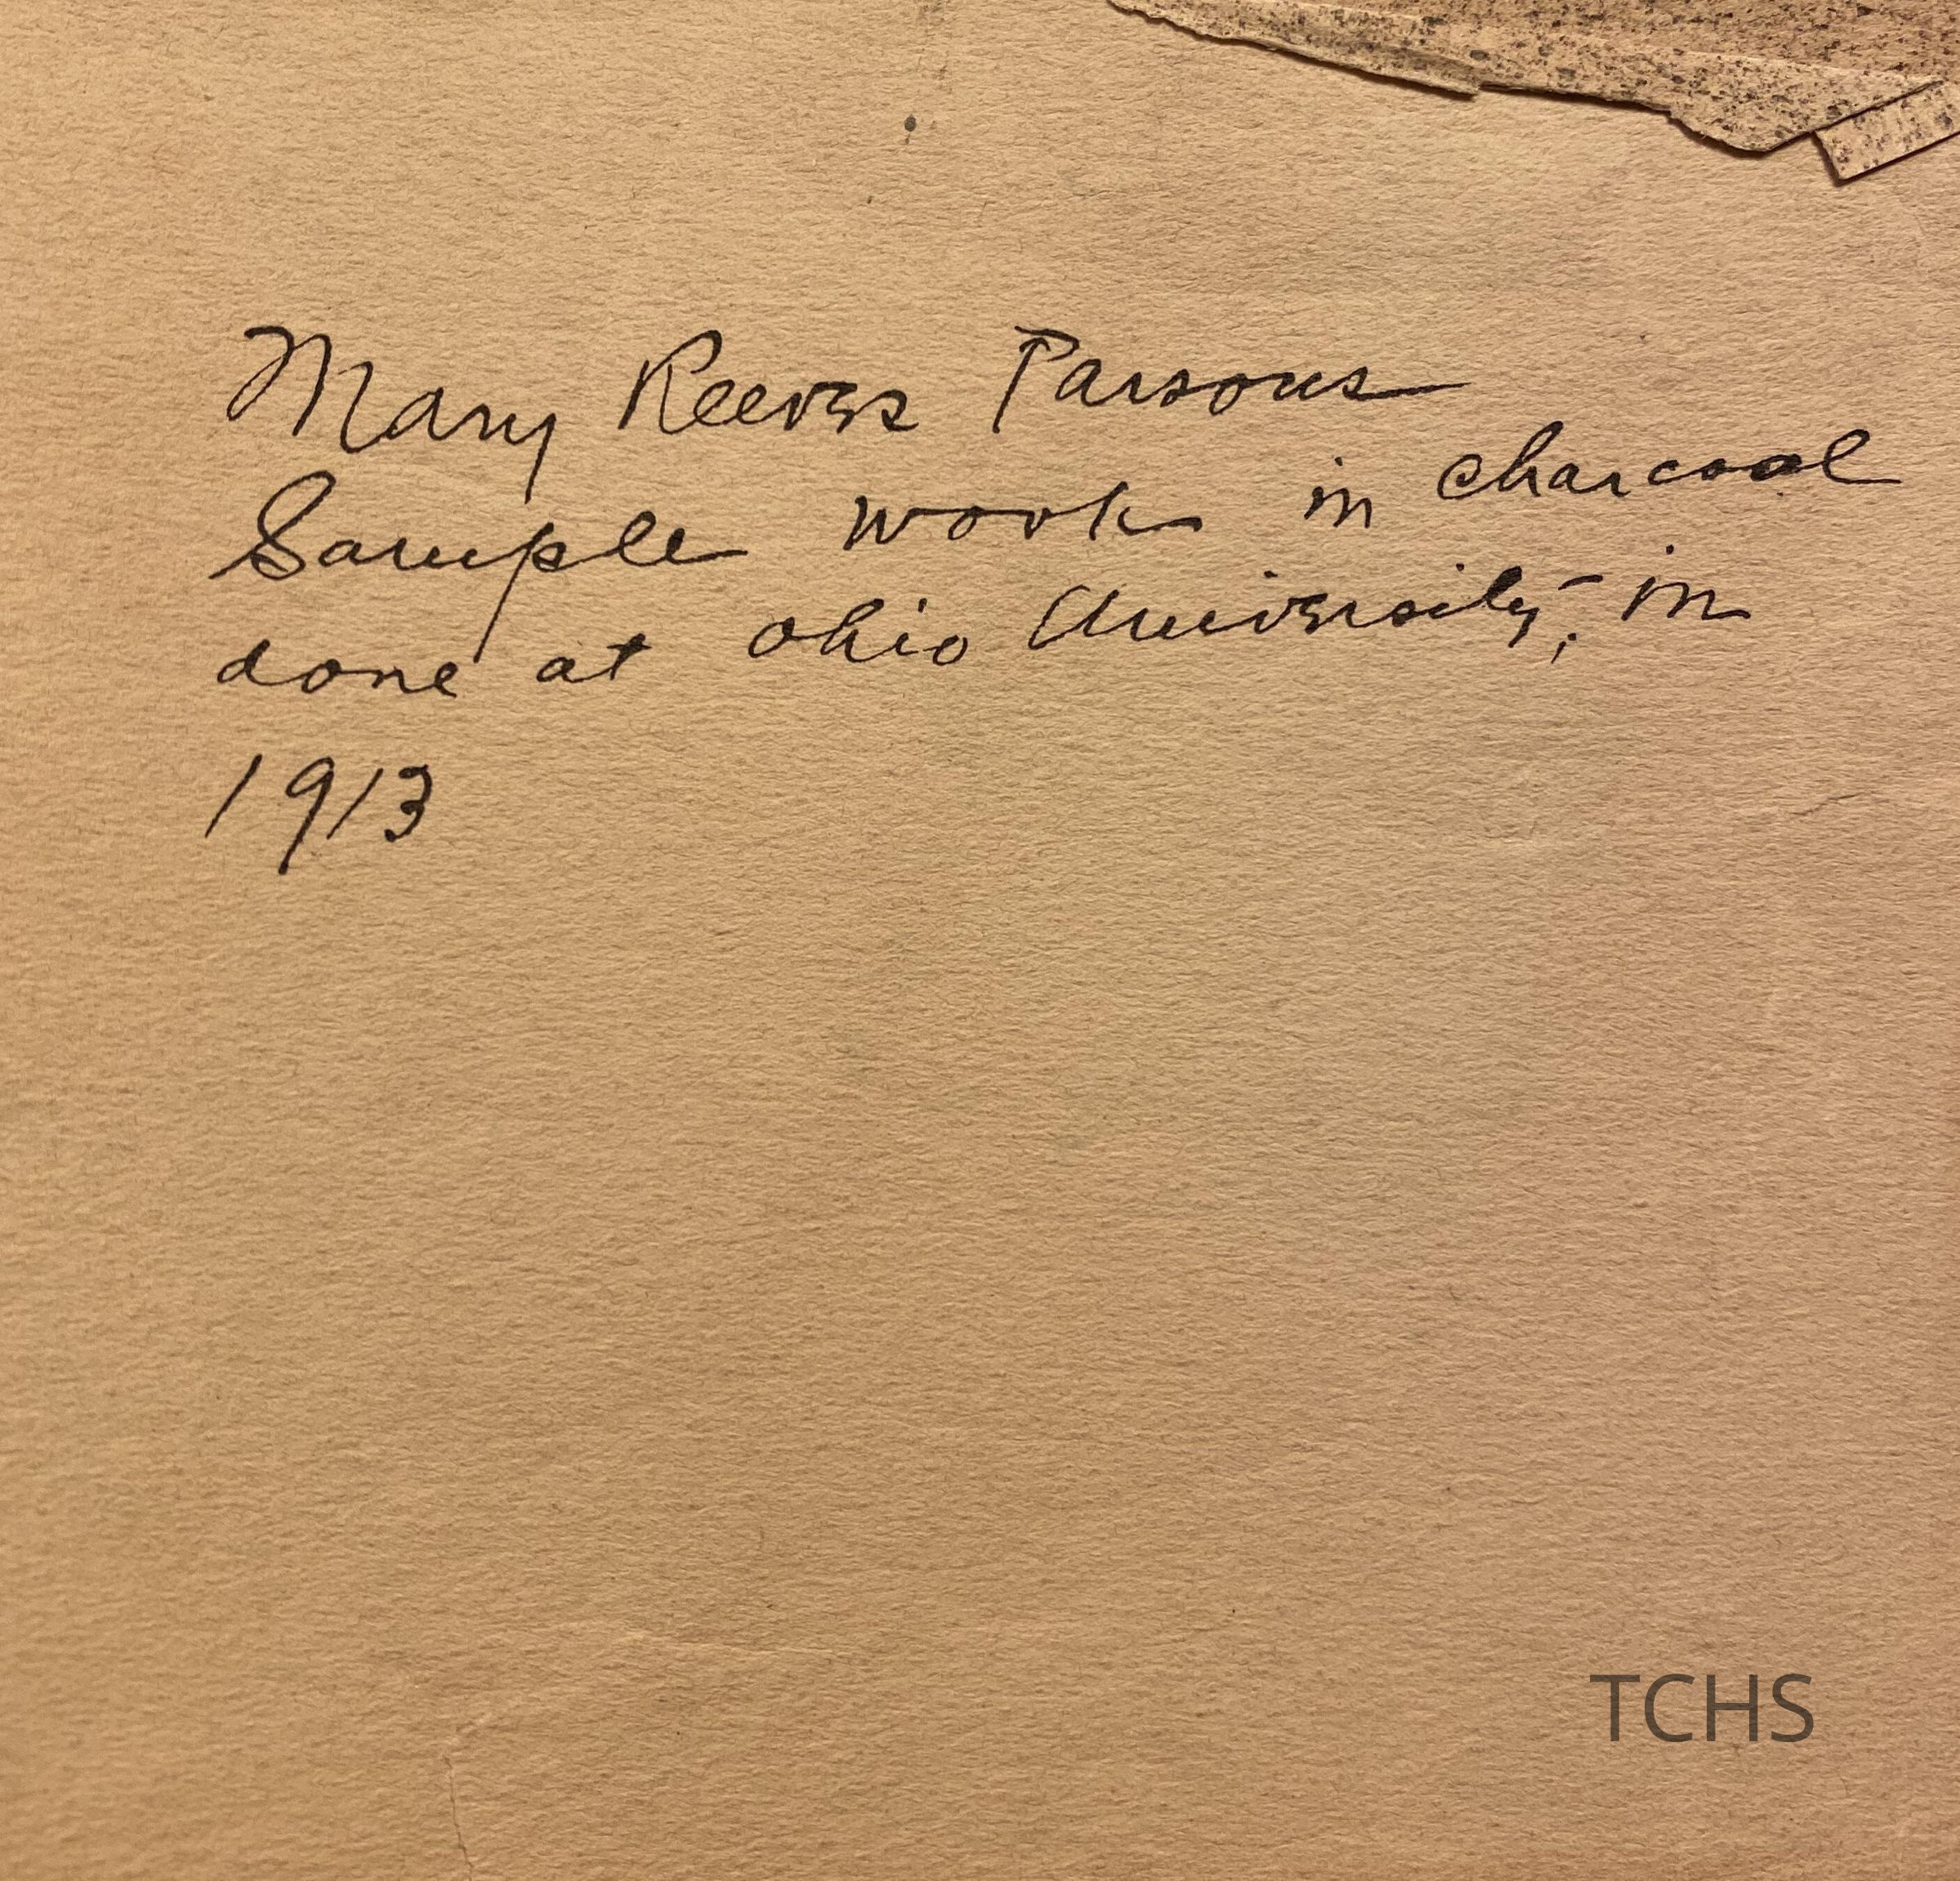 Mary Reeves Parsons
Sample work in charcoal
done at Ohio University, in
1913
TCHS